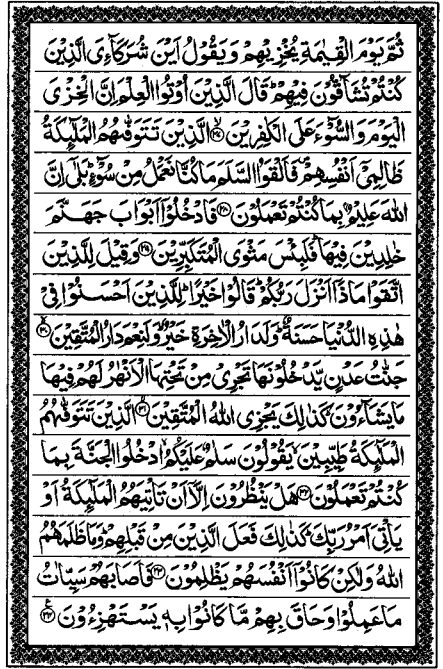 ثُمَّ يَوْمَ الْقِيٰمَةِ يُخْزِيْهِمْ وَيَقُوْلُ اَيْنَ شُرَكَآءِىَ الَّذِيْنَ
كُنْتُمْ تُشَآقُّوْنَ فِيْهِمْ ؕ قَالَ الَّذِيْنَ اُوْتُوا الْعِلْمَ اِنَّ الْخِزْىَ
الْيَوْمَ وَالسُّوْٓءَ عَلَى الْكٰفِرِيْنَ ۙ﴿۲۷﴾ الَّذِيْنَ تَتَوَفّٰىهُمُ الْمَلٰٓئِكَةُ
ظَالِمِىْٓ اَنْفُسِهِمْ ۪ فَاَلْقَوُا السَّلَمَ مَا كُنَّا نَعْمَلُ مِنْ سُوْٓءٍ ؕ بَلٰٓى اِنَّ
اللّٰهَ عَلِيْمٌۢ بِمَا كُنْتُمْ تَعْمَلُوْنَ ﴿۲۸﴾ فَادْخُلُوْٓا اَبْوَابَ جَهَنَّمَ
خٰلِدِيْنَ فِيْهَا ؕ فَلَبِئْسَ مَثْوَى الْمُتَكَبِّرِيْنَ ﴿۲۹﴾ وَقِيْلَ لِلَّذِيْنَ
اتَّقَوْا مَاذَاۤ اَنْزَلَ رَبُّكُمْ ؕ قَالُوْا خَيْرًا ؕ لِلَّذِيْنَ اَحْسَنُوْا فِىْ
هٰذِهِ الدُّنْيَا حَسَنَةٌ ؕ وَلَدَارُ الْاٰخِرَةِ خَيْرٌ ؕ وَلَنِعْمَ دَارُ الْمُتَّقِيْنَ ۙ﴿۳۰﴾
جَنّٰتُ عَدْنٍ يَّدْخُلُوْنَهَا تَجْرِىْ مِنْ تَحْتِهَا الْاَنْهٰرُ لَهُمْ فِيْهَا
مَا يَشَآءُوْنَ ؕ كَذٰلِكَ يَجْزِى اللّٰهُ الْمُتَّقِيْنَ ۙ﴿۳۱﴾ الَّذِيْنَ تَتَوَفّٰىهُمُ
الْمَلٰٓئِكَةُ طَيِّبِيْنَ ۙ يَقُوْلُوْنَ سَلٰمٌ عَلَيْكُمُ ۙ ادْخُلُوا الْجَنَّةَ بِمَا
كُنْتُمْ تَعْمَلُوْنَ ﴿۳۲﴾ هَلْ يَنْظُرُوْنَ اِلَّاۤ اَنْ تَاْتِيَهُمُ الْمَلٰٓئِكَةُ اَوْ
يَاْتِىَ اَمْرُ رَبِّكَ ؕ كَذٰلِكَ فَعَلَ الَّذِيْنَ مِنْ قَبْلِهِمْ ؕ وَمَا ظَلَمَهُمُ
اللّٰهُ وَلٰكِنْ كَانُوْٓا اَنْفُسَهُمْ يَظْلِمُوْنَ ﴿۳۳﴾ فَاَصَابَهُمْ سَيِّاٰتُ
مَا عَمِلُوْا وَحَاقَ بِهِمْ مَّا كَانُوْا بِهٖ يَسْتَهْزِءُوْنَ ﴿۳۴﴾